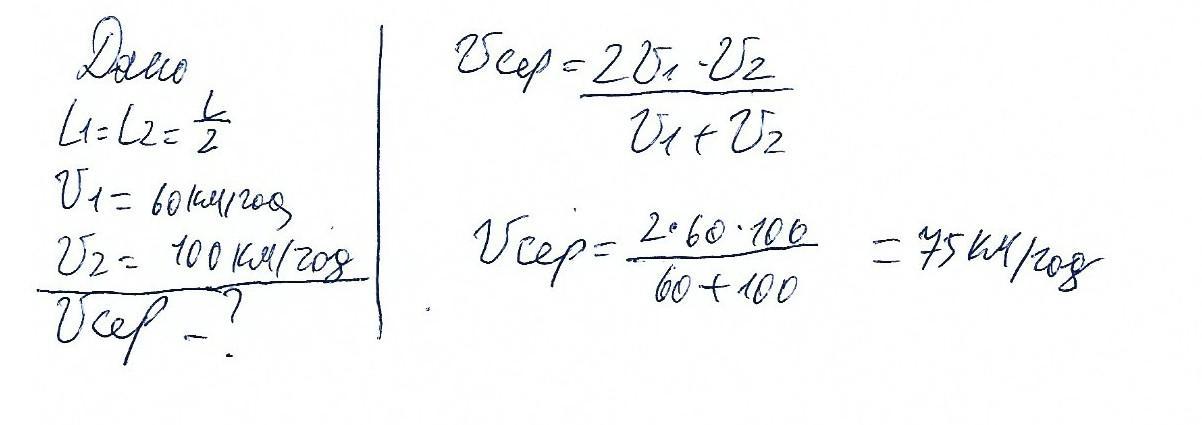 Дано
L1=L2=L/2
V1=60км/год
V2=100км/год
Vсер-?
Vсер=2V1·V2/V1+V2
Vсер=2·60·100/60+100=75км/год